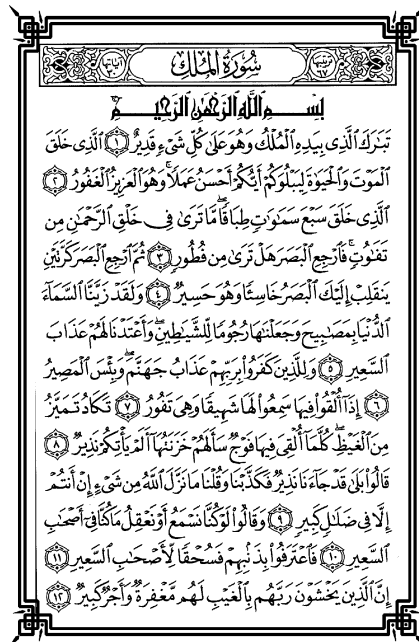 ترتيبها ٦٧ سُورَةُ الْمُلْكِ آياتها ٣٠
بِسْمِ اللَّهِ الرَّحْمَٰنِ الرَّحِيمِ
تَبَارَكَ الَّذِي بِيَدِهِ الْمُلْكُ وَهُوَ عَلَىٰ كُلِّ شَيْءٍ قَدِيرٌ ١ الَّذِي خَلَقَ
الْمَوْتَ وَالْحَيَاةَ لِيَبْلُوَكُمْ أَيُّكُمْ أَحْسَنُ عَمَلًا وَهُوَ الْعَزِيزُ الْغَفُورُ ٢
الَّذِي خَلَقَ سَبْعَ سَمَاوَاتٍ طِبَاقًا مَّا تَرَىٰ فِي خَلْقِ الرَّحْمَٰنِ مِن
تَفَاوُتٍ فَارْجِعِ الْبَصَرَ هَلْ تَرَىٰ مِن فُطُورٍ ٣ ثُمَّ ارْجِعِ الْبَصَرَ كَرَّتَيْنِ
يَنقَلِبْ إِلَيْكَ الْبَصَرُ خَاسِئًا وَهُوَ حَسِيرٌ ٤ وَلَقَدْ زَيَّنَّا السَّمَاءَ
الدُّنْيَا بِمَصَابِيحَ وَجَعَلْنَاهَا رُجُومًا لِّلشَّيَاطِينِ وَأَعْتَدْنَا لَهُمْ عَذَابَ
السَّعِيرِ ٥ وَلِلَّذِينَ كَفَرُوا بِرَبِّهِمْ عَذَابُ جَهَنَّمَ وَبِئْسَ الْمَصِيرُ
٦ إِذَا أُلْقُوا فِيهَا سَمِعُوا لَهَا شَهِيقًا وَهِيَ تَفُورُ ٧ تَكَادُ تَمَيَّزُ
مِنَ الْغَيْظِ كُلَّمَا أُلْقِيَ فِيهَا فَوْجٌ سَأَلَهُمْ خَزَنَتُهَا أَلَمْ يَأْتِكُمْ نَذِيرٌ ٨
قَالُوا بَلَىٰ قَدْ جَاءَنَا نَذِيرٌ فَكَذَّبْنَا وَقُلْنَا مَا نَزَّلَ اللَّهُ مِن شَيْءٍ إِنْ أَنتُمْ
إِلَّا فِي ضَلَالٍ كَبِيرٍ ٩ وَقَالُوا لَوْ كُنَّا نَسْمَعُ أَوْ نَعْقِلُ مَا كُنَّا فِي أَصْحَابِ
السَّعِيرِ ١٠ فَاعْتَرَفُوا بِذَنبِهِمْ فَسُحْقًا لِّأَصْحَابِ السَّعِيرِ ١١
إِنَّ الَّذِينَ يَخْشَوْنَ رَبَّهُم بِالْغَيْبِ لَهُم مَّغْفِرَةٌ وَأَجْرٌ كَبِيرٌ ١٢